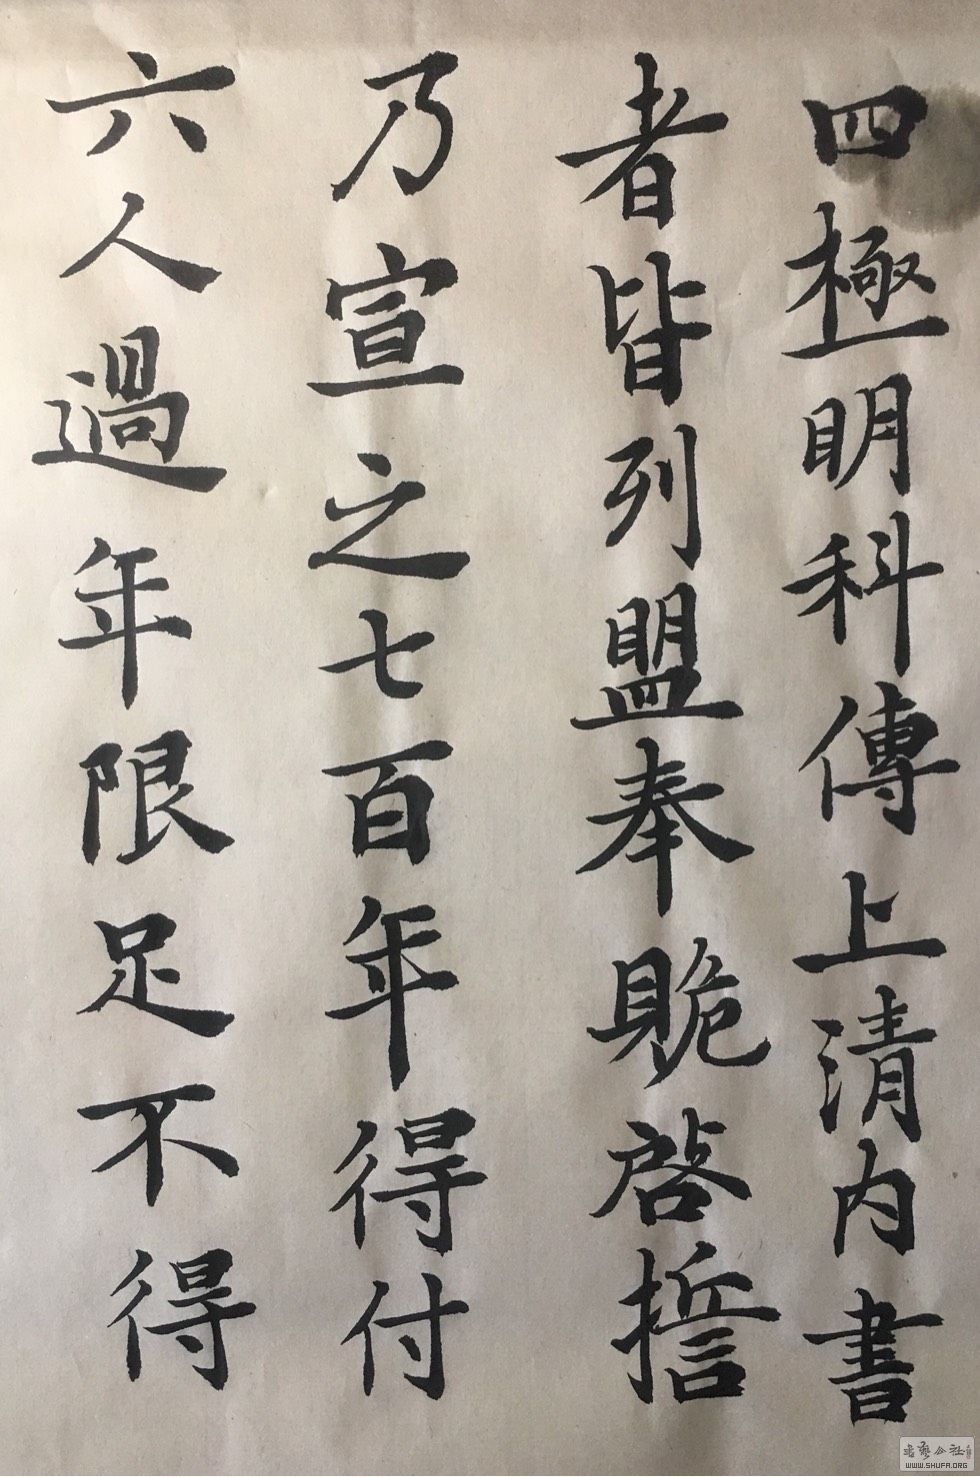 四極明科傳上清内書
者皆列盟奉貺啓誓
乃宣之七百年得付
六人過年限足不得
WWW.SHUFA.ORG